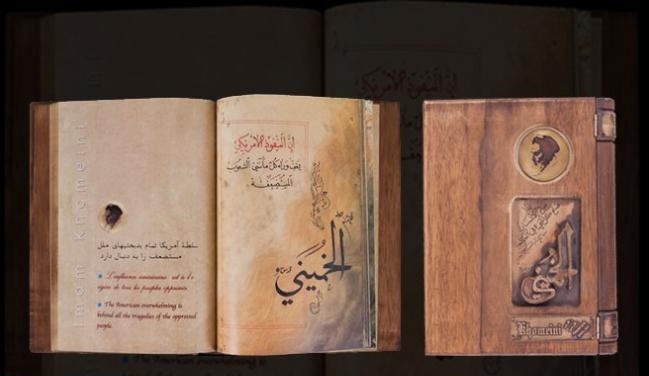 Imam Khomeini
سلطهٔ آمریکا تمام بدبختیهای ملل
مستضعف را به دنبال دارد
L'influence américaine est à l'o
rigine de tous les peuples opprimés.
The American overwhelming is
behind all the tragedies of the oppressed
people.
إنّ النفوذ الأمريكي
يقف وراء كل مآسي الشعوب
المستضعفة.
الخميني
Khomeini